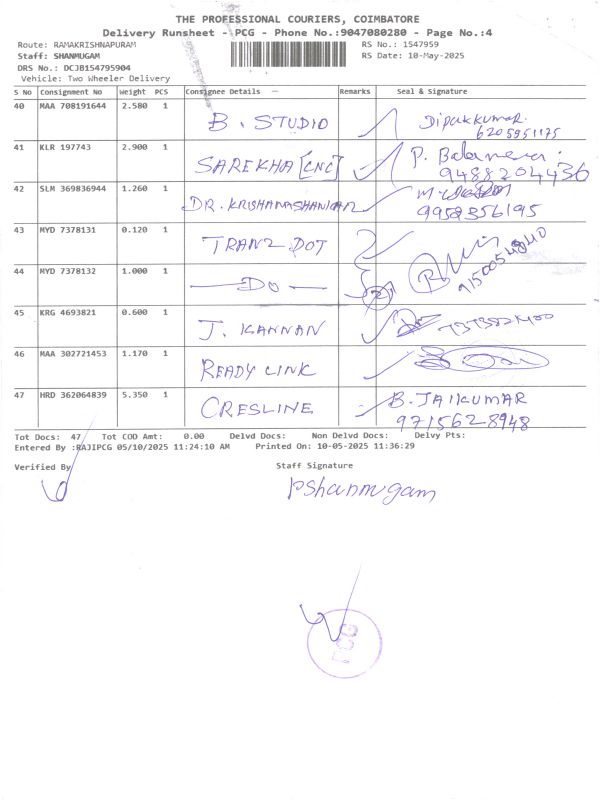 THE PROFESSIONAL COURIERS, COIMBATORE
Delivery Runsheet - PCG - Phone No.:9047080280 - Page No.:4
Route: RAMAKRISHNAPURAM RS No.: 1547959
Staff: SHANMUGAM RS Date: 10-May-2025
DRS No.: DCJB154795904
Vehicle: Two Wheeler Delivery
S No Consignment No Weight PCS Consignee Details Remarks Seal & Signature
40 MAA 708191644 2.580 1 B. STUDIO Dipakkumar.
6205951175
41 KLR 197743 2.900 1 SAREKHA [CNC] P.
9488204436
42 SLM 369836944 1.260 1 DR. KRISHANASHANKAR
9952356195
43 MYD 7378131 0.120 1 TRANZ DOT
9150054840
44 MYD 7378132 1.000 1 — DO — 2
45 KRG 4693821 0.600 1 J. KANNAN
46 MAA 302721453 1.170 1 READY LINK
47 HRD 362064839 5.350 1 CRESLINE B. JAIKUMAR
9715628948
Tot Docs: 47 Tot COD Amt: 0.00 Delvd Docs: Non Delvd Docs: Delvy Pts:
Entered By :RAJIPCG 05/10/2025 11:24:10 AM Printed On: 10-05-2025 11:36:29
Verified By Staff Signature
PShanmugam
PCG